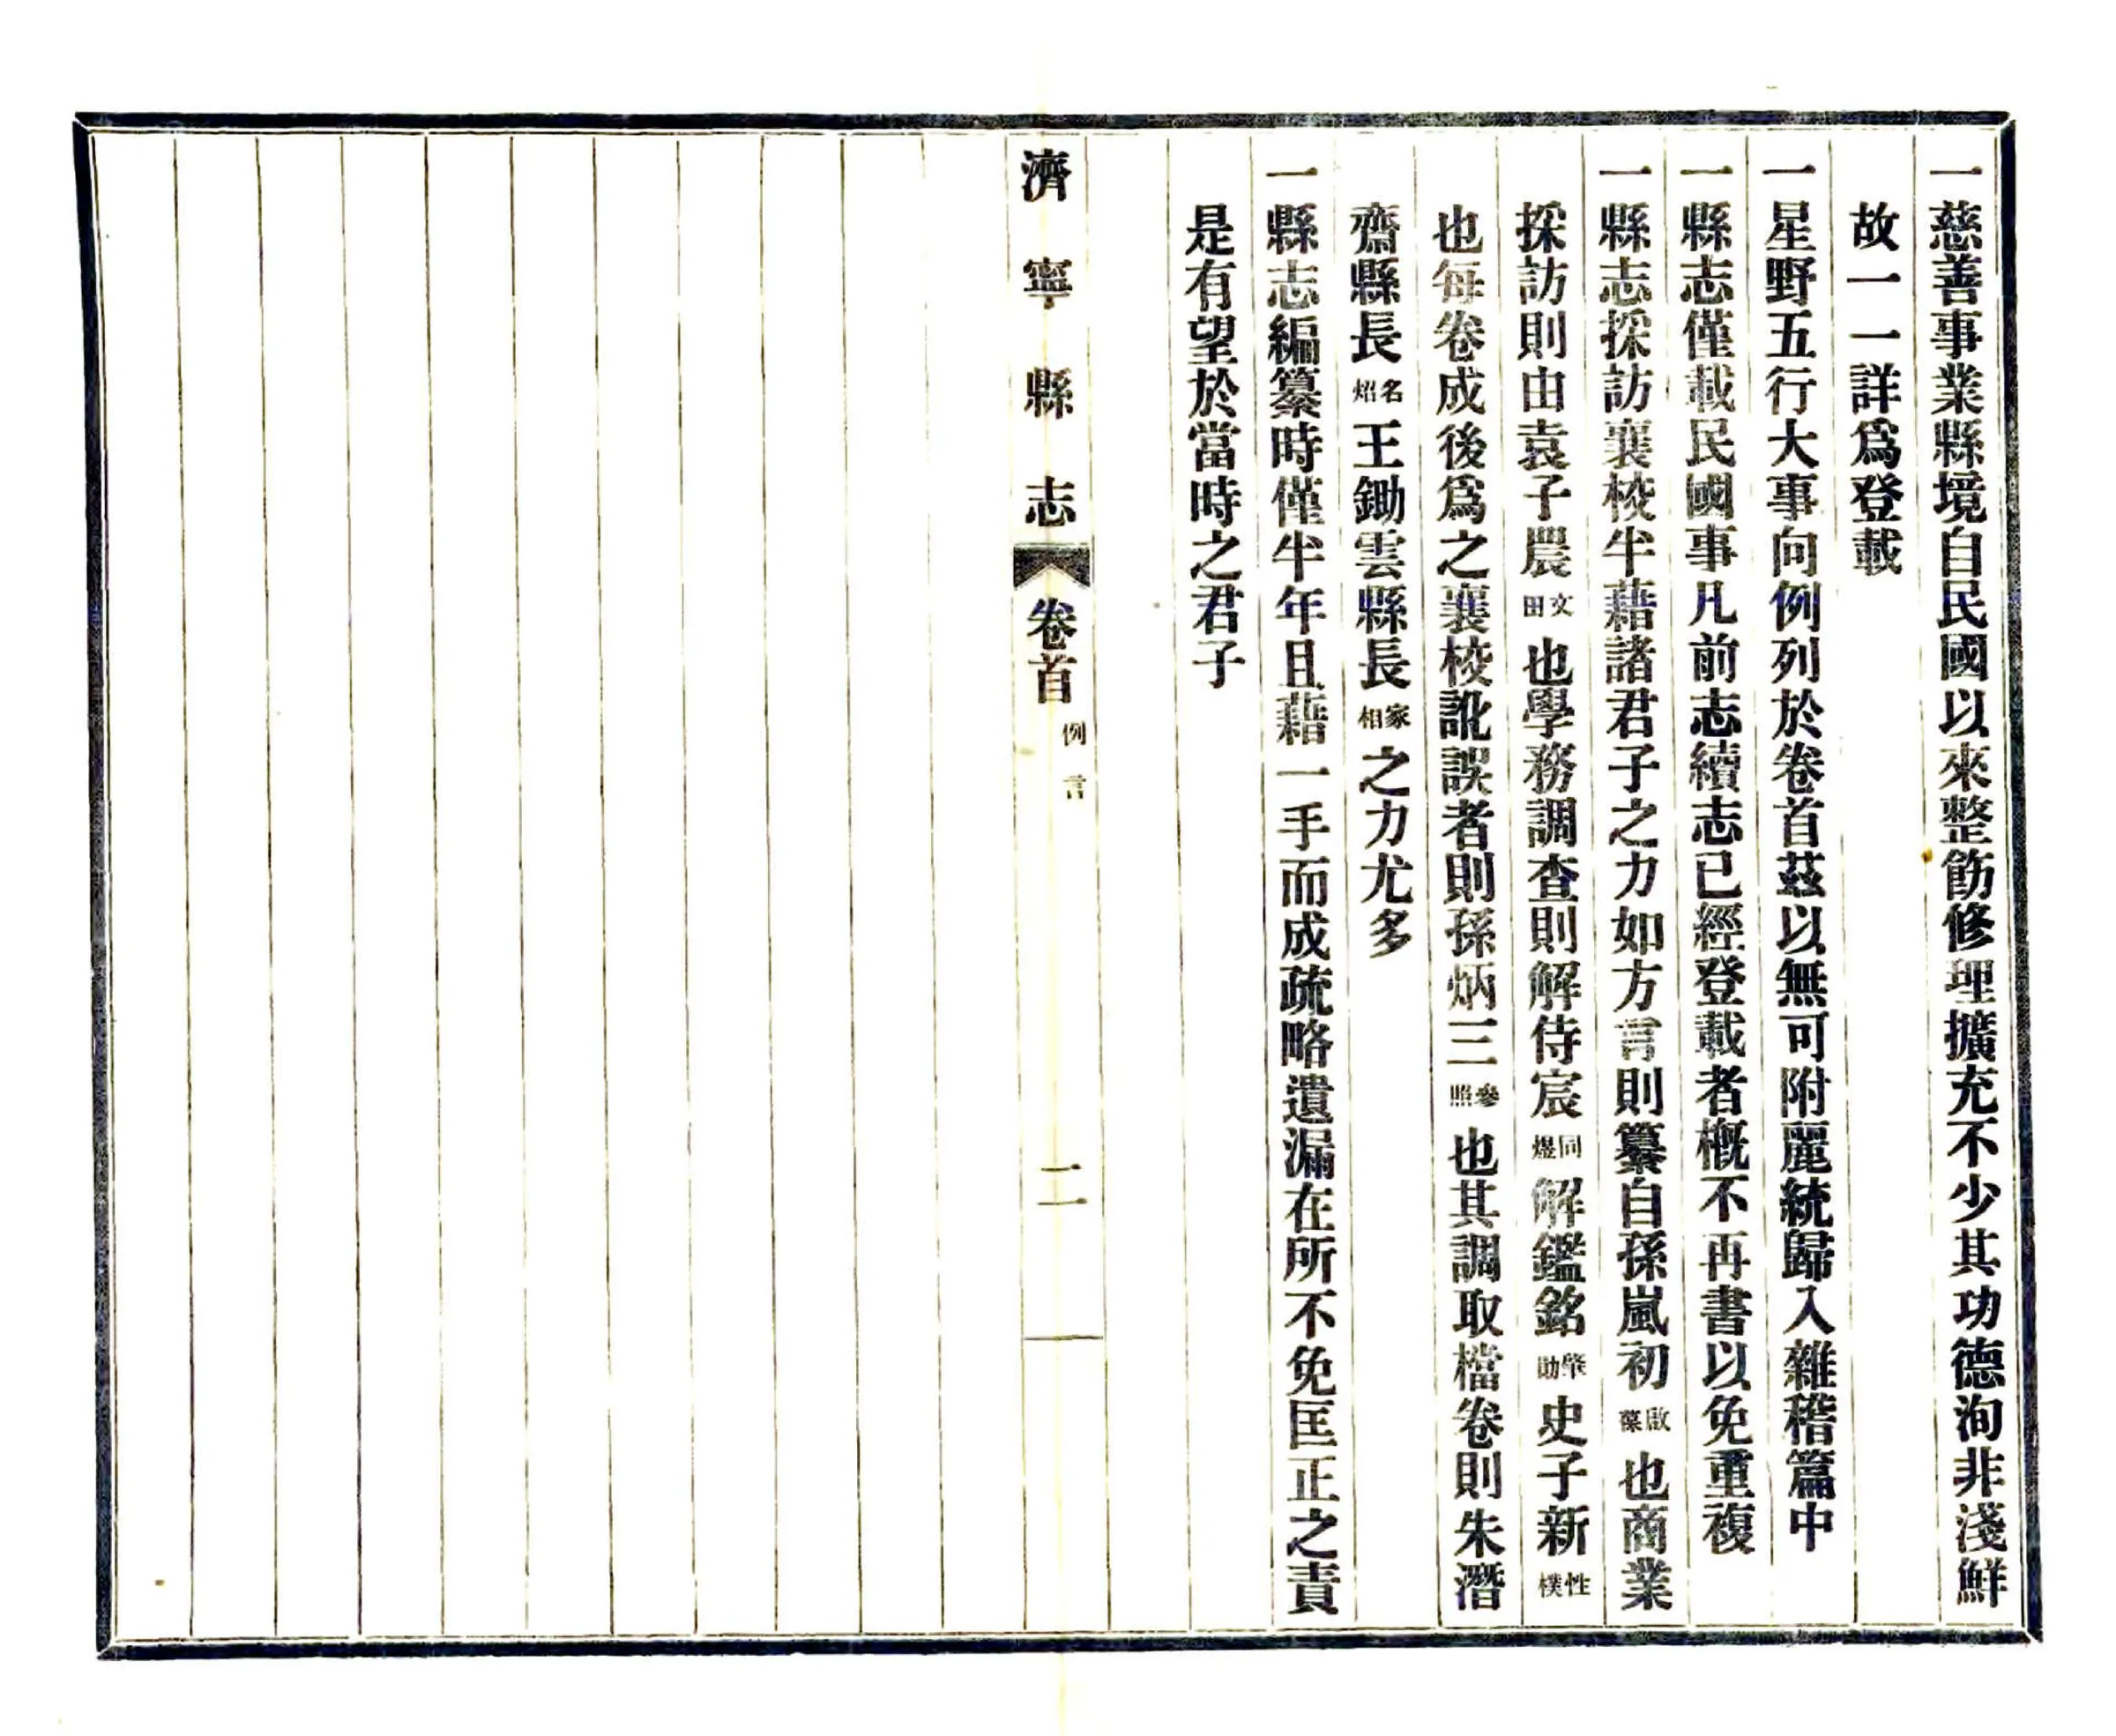 一慈善事業縣境自民國以來整飭修理擴充不少其功德洵非淺鮮
故一一詳爲登載
一星野五行大事向例列於卷首茲以無可附麗統歸入雜稽篇中
一縣志僅載民國事凡前志續志已經登載者槪不再書以免重複
一縣志採訪襄校半藉諸君子之力如方言則纂自孫嵐初啟葆也商業
採訪則由袁子農文田也學務調查則解侍宸同煜解鑑銘肇勛史子新性樸
也每卷成後爲之襄校訛誤者則孫炳三參照也其調取檔卷則朱潛
齋縣長名炤王鋤雲縣長家相之力尤多
一縣志編纂時僅半年且藉一手而成疏略遺漏在所不免匡正之責
是有望於當時之君子
濟寧縣志 卷首 例言 二